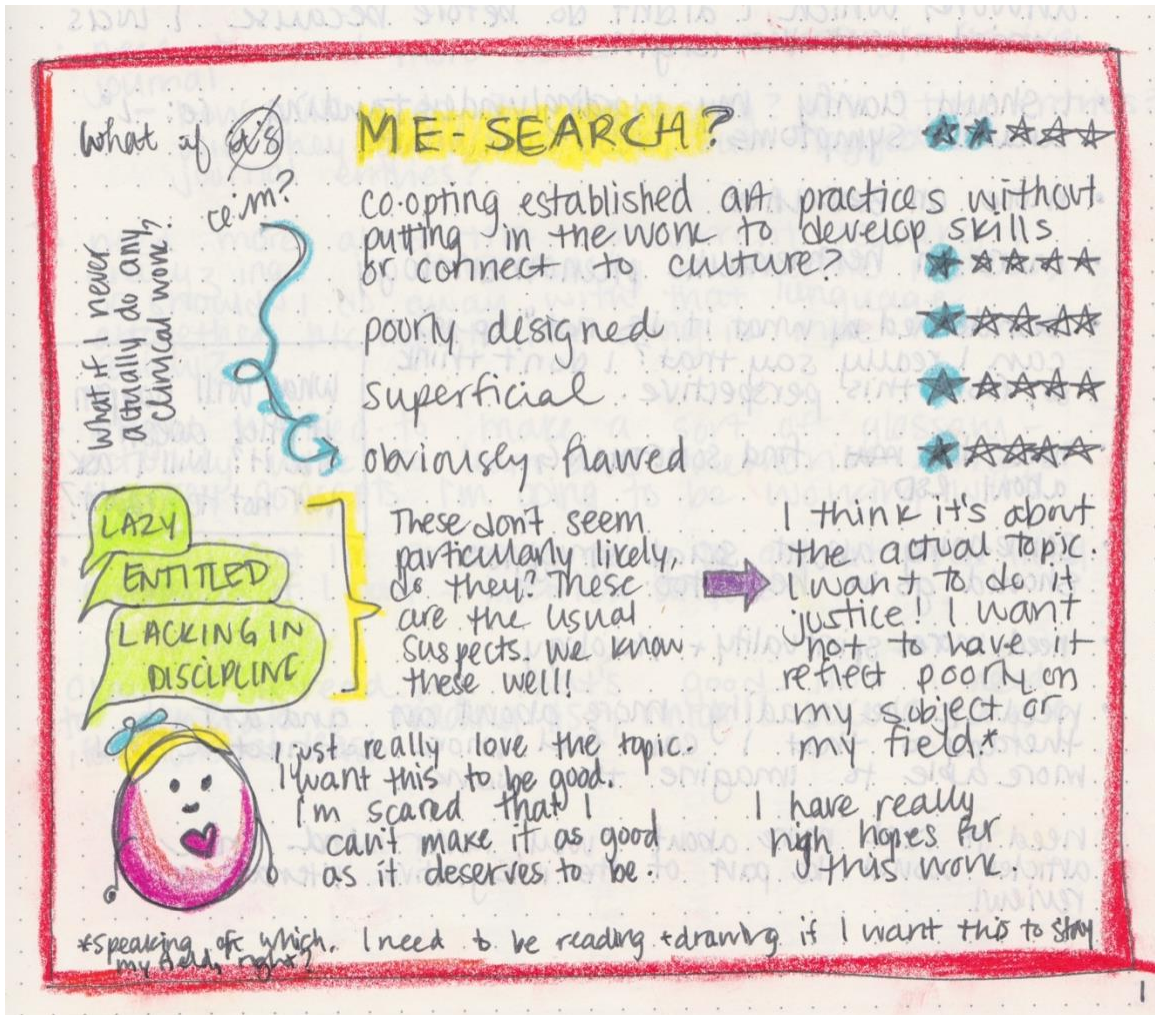 What if it's
ME-SEARCH?
i'm?
what if i never
actually do any
clinical work?
co-opting established art practices without
putting in the work to develop skills
or connect to culture?
poorly designed
superficial
obviously flawed
LAZY
ENTITLED
LACKING IN
DISCIPLINE
These don't seem
particularly likely,
do they? These
are the usual
suspects. We know
these well!
I think it's about
the actual topic.
I want to do it
justice! I want
not to have it
reflect poorly on
my subject or
my field.*
I just really love the topic.
I want this to be good.
I'm scared that I
can't make it as good
as it deserves to be.
I have really
high hopes for
this work.
*speaking of which, I need to be reading + drawing if I want this to stay
my field, right?
1